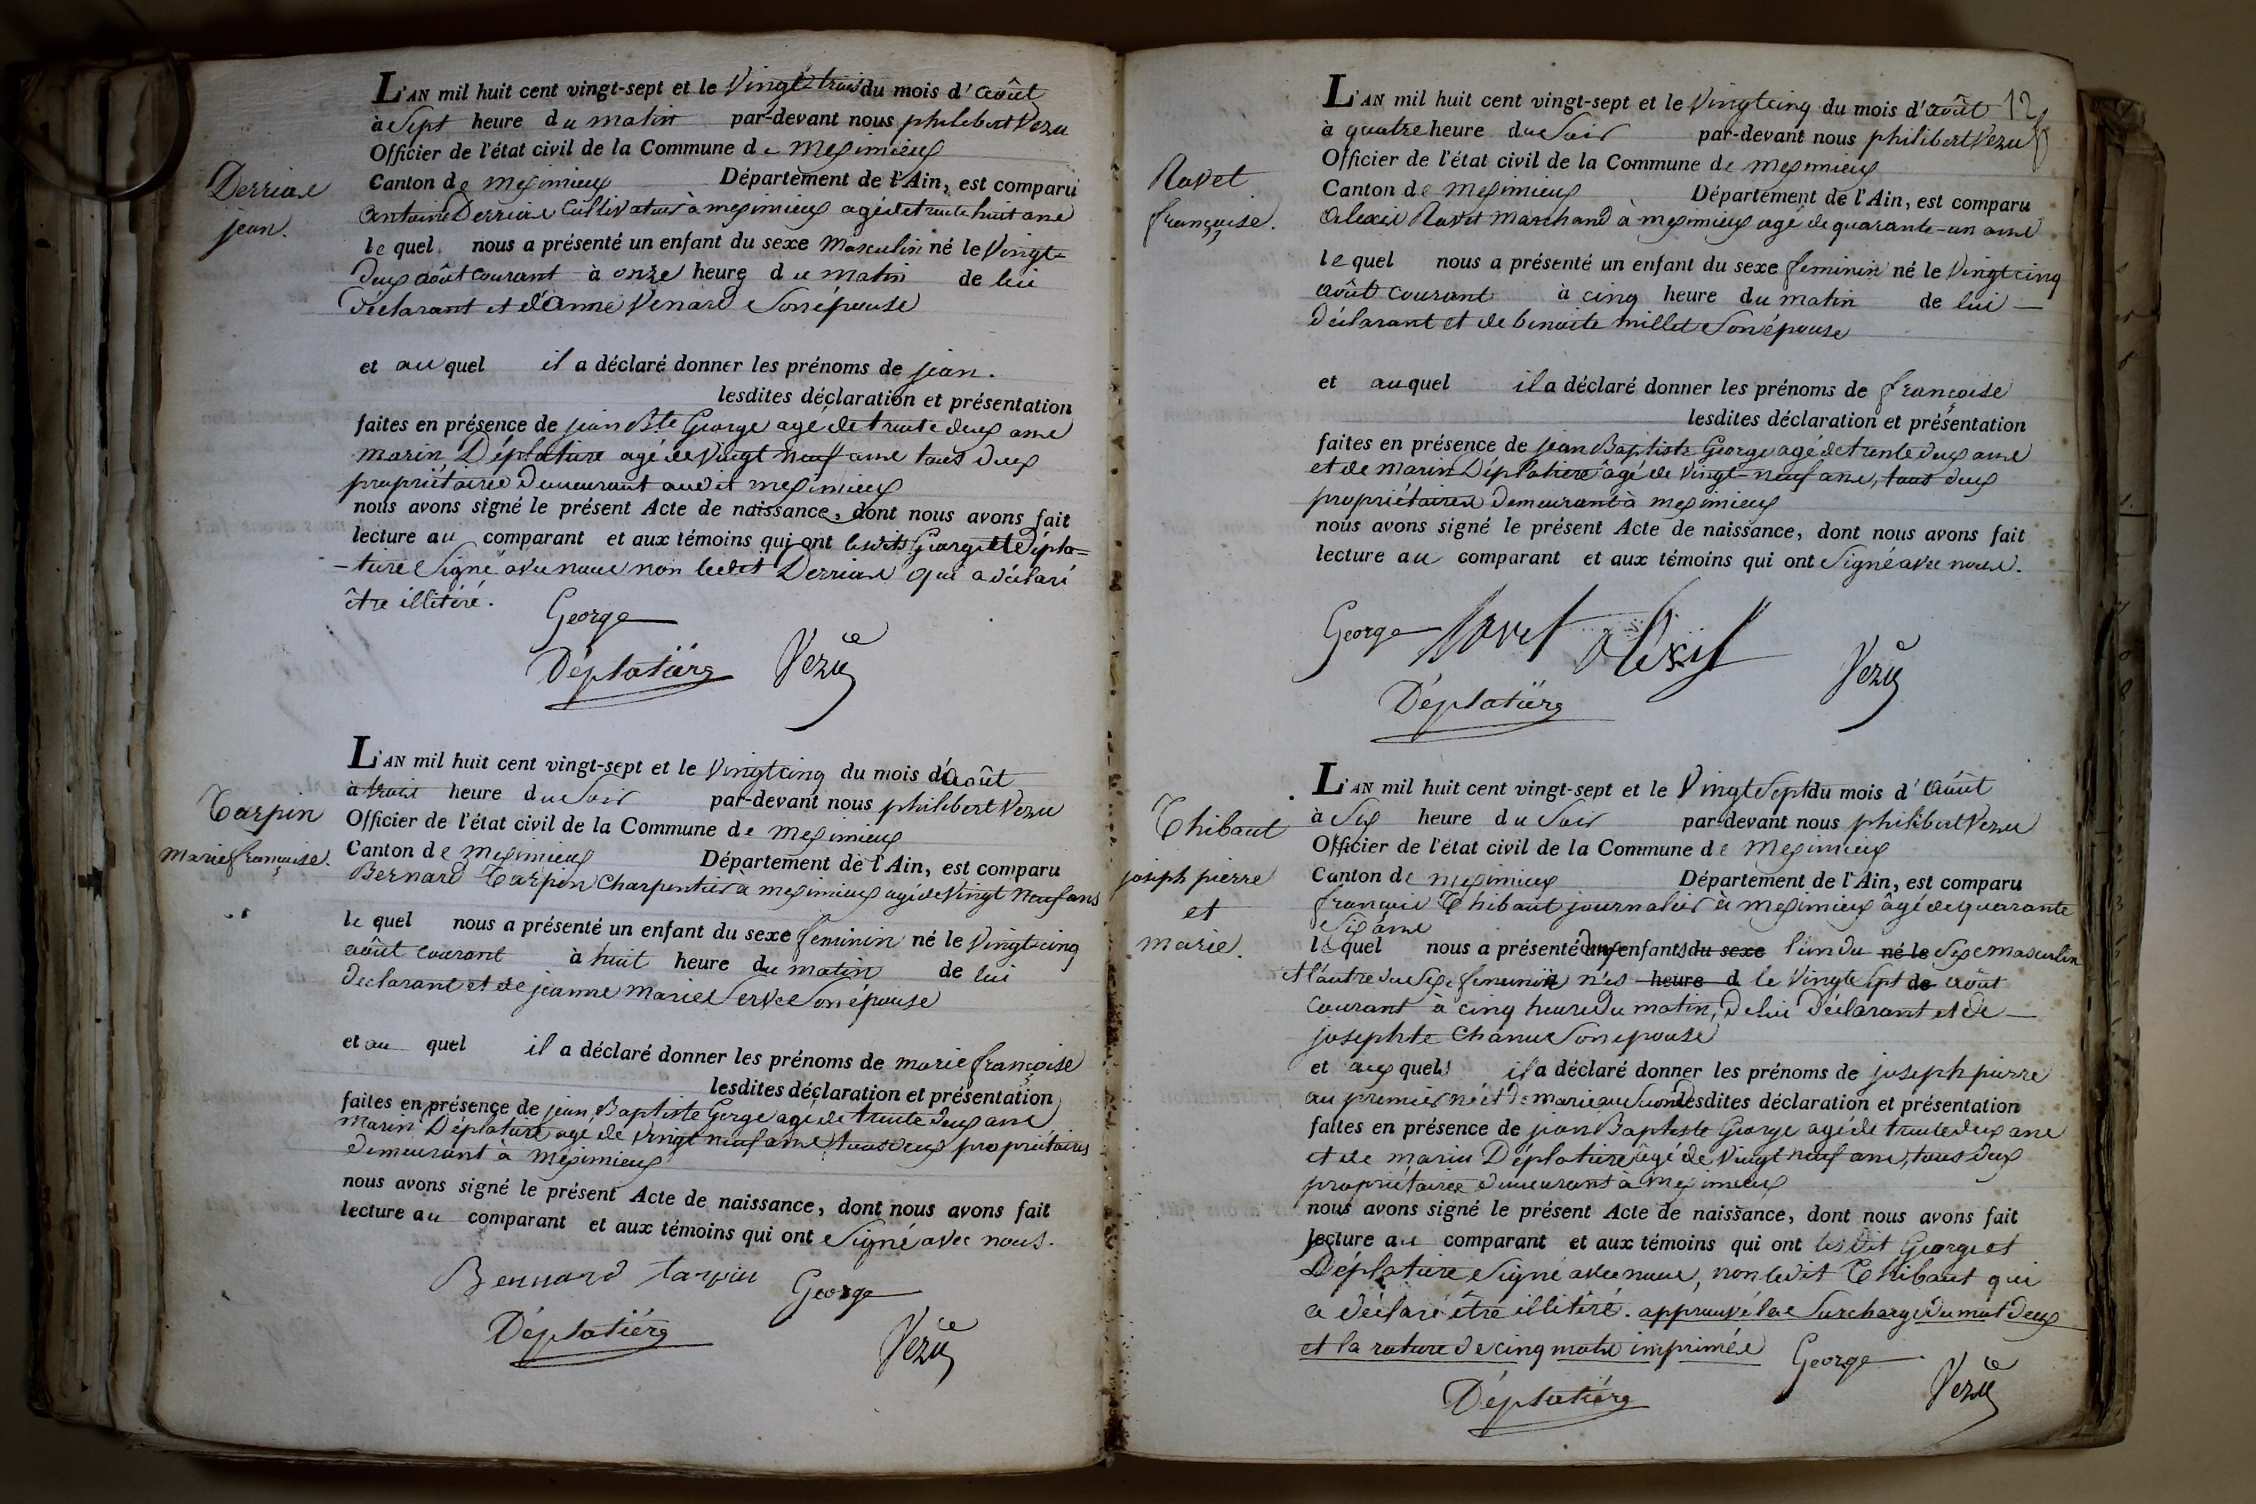 L'AN mil huit cent vingt-sept et le Vingt-trois du mois d'août
à Sept heure du matin par-devant nous philibert Vezu
Officier de l'état civil de la Commune de meximieux
Canton de meximieux Département de l'Ain, est comparu
Derriax
jean.
antoine Derriax Cultivateur à meximieux agé de trente huit ans
le quel nous a présenté un enfant du sexe masculin né le Vingt=
deux août courant à onze heure du matin de lui
Déclarant et d'anne Venard Son épouse
et au quel il a déclaré donner les prénoms de jean.
lesdites déclaration et présentation
faites en présence de jean Bte George agé de trente deux ans
marin Déplature agé de Vingt neuf ans tous deux
propriétaires demeurant audit meximieux
nous avons signé le présent Acte de naissance, dont nous avons fait
lecture au comparant et aux témoins qui ont lesdits George et Dépla=
-ture Signé avec nous non ledit Derriax qui a déclaré
être illitéré.
George
Déplatière Vezu
L'AN mil huit cent vingt-sept et le Vingt cinq du mois d'août
à trois heure du Soir par-devant nous philibert Vezu
Tarpin
marie françoise.
Officier de l'état civil de la Commune de meximieux
Canton de meximieux Département de l'Ain, est comparu
Bernard Tarpin Charpentier à meximieux agé de Vingt neuf ans
le quel nous a présenté un enfant du sexe feminin né le Vingt cinq
août courant à huit heure du matin de lui
declarant et de jeanne marie Serve Son épouse
et au quel il a déclaré donner les prénoms de marie françoise
lesdites déclaration et présentation
faites en présence de jean Baptiste Gorge agé de trente deux ans
marin Déplature agé de vingt neuf ans tous deux propriétaires
demeurant à meximieux
nous avons signé le présent Acte de naissance, dont nous avons fait
lecture au comparant et aux témoins qui ont Signé avec nous.
Bernard tarpin George
Déplatière Vezu
12
L'AN mil huit cent vingt-sept et le Vingt cinq du mois d'août
à quatre heure du Soir par-devant nous philibert Vezu
Officier de l'état civil de la Commune de meximieux
Ravet
françoise.
Canton de meximieux Département de l'Ain, est comparu
alexis Ravet marchand à meximieux agé de quarante-un ans
le quel nous a présenté un enfant du sexe feminin né le Vingt cinq
août courant à cinq heure du matin de lui
déclarant et de benoite millet Son épouse
et auquel il a déclaré donner les prénoms de françoise
lesdites déclaration et présentation
faites en présence de jean Baptiste George agé de trente deux ans
et de marin Déplatière âgé de Vingt-neuf ans, tous deux
propriétaires demeurant à meximieux
nous avons signé le présent Acte de naissance, dont nous avons fait
lecture au comparant et aux témoins qui ont Signé avec nous.
George Ravet Alexis Vezu
Déplatière
L'AN mil huit cent vingt-sept et le Vingt Sept du mois d'août
à Six heure du Soir par-devant nous philibert Vezu
Officier de l'état civil de la Commune de meximieux
Thibaut
joseph pierre
et
marie.
Canton de meximieux Département de l'Ain, est comparu
françois Thibaut journalier à meximieux âgé de quarante
Six ans
le quel nous a présenté deux enfants du sexe l'un du né le Sexe masculin
et l'autre du Sexe feminin nés heure d le Vingt Sept de août
courant à cinq heure du matin, de lui Déclarant et de
josephte Chanu Son epouse
et aux quels il a déclaré donner les prénoms de joseph pierre
au premier né et de marie au Second lesdites déclaration et présentation
faites en présence de jean Baptiste George agé de trente deux ans
et de marin Déplature âgé de Vingt neuf ans, tous deux
propriétaires demeurant à meximieux
nous avons signé le présent Acte de naissance, dont nous avons fait
lecture au comparant et aux témoins qui ont lesdit George et
Déplature Signé avec nous, non ledit Thibaut qui
a déclaré être illitéré. approuvé la Surcharge du mot deux
et la rature de cinq mots imprimés George Vezu
Déplatière